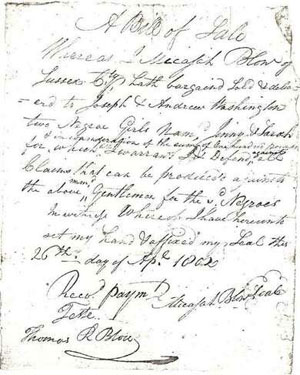 A Bill of Sale
Whereas I Micajah Blow of
Sussex Cty hath bargaind Sold & deliv-
erd to Joseph & Andrew Washington
two Negroe Girls Namd Jenny & Sarah
in consideration of the sum of one hundred
for which I warrant & Defend, all
Claims that can be produced against
the above Gentlemen for the sd Negroes
In witness Whereof I have hereunto
set my hand & affixed my Seal this
26th day of Apl 1802
Recd paymt Micajah Blow Seal
Teste
Thomas R Blow